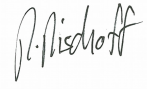 R. Bischoff